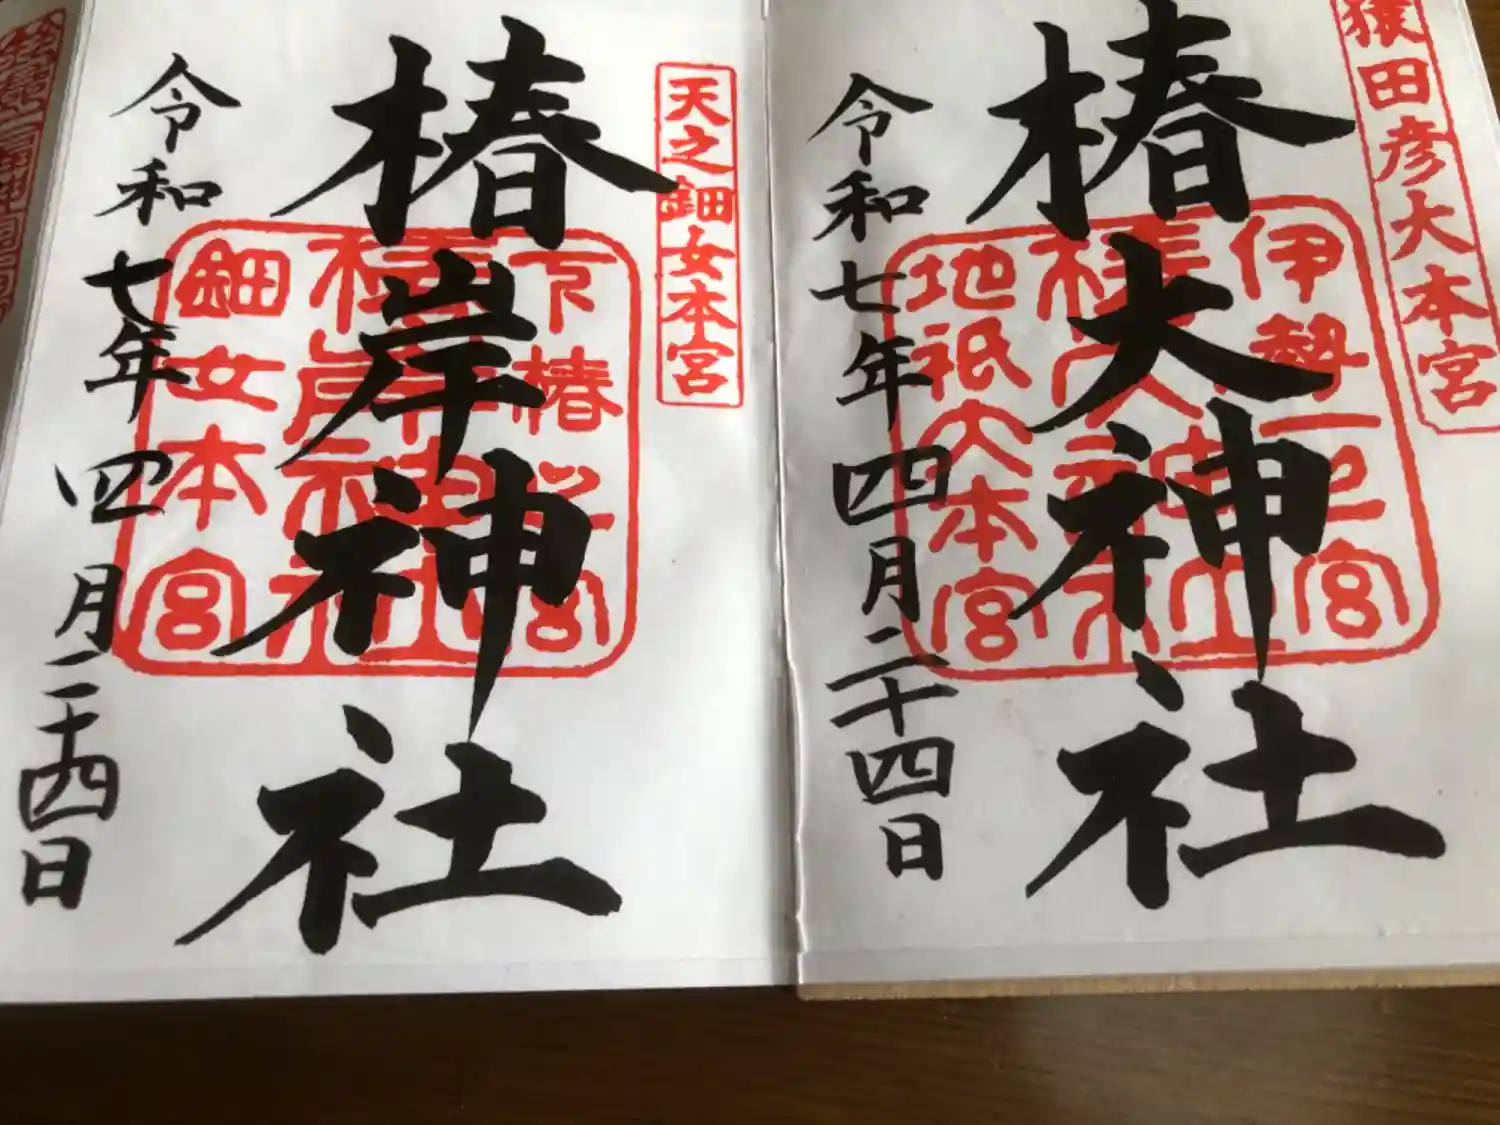 猿田彦大本宮
椿大神社
伊勢一之宮
椿大神社
地祇大本宮
令和七年四月二十四日
天之鈿女本宮
椿岸神社
下椿
宮
椿岸神社
鈿女本宮
令和七年四月二十四日